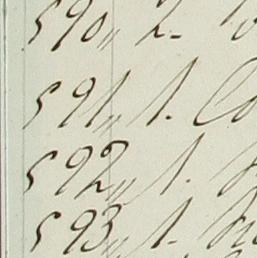 590,, 2.
591,, 1.
592,, 1.
593,, 1.